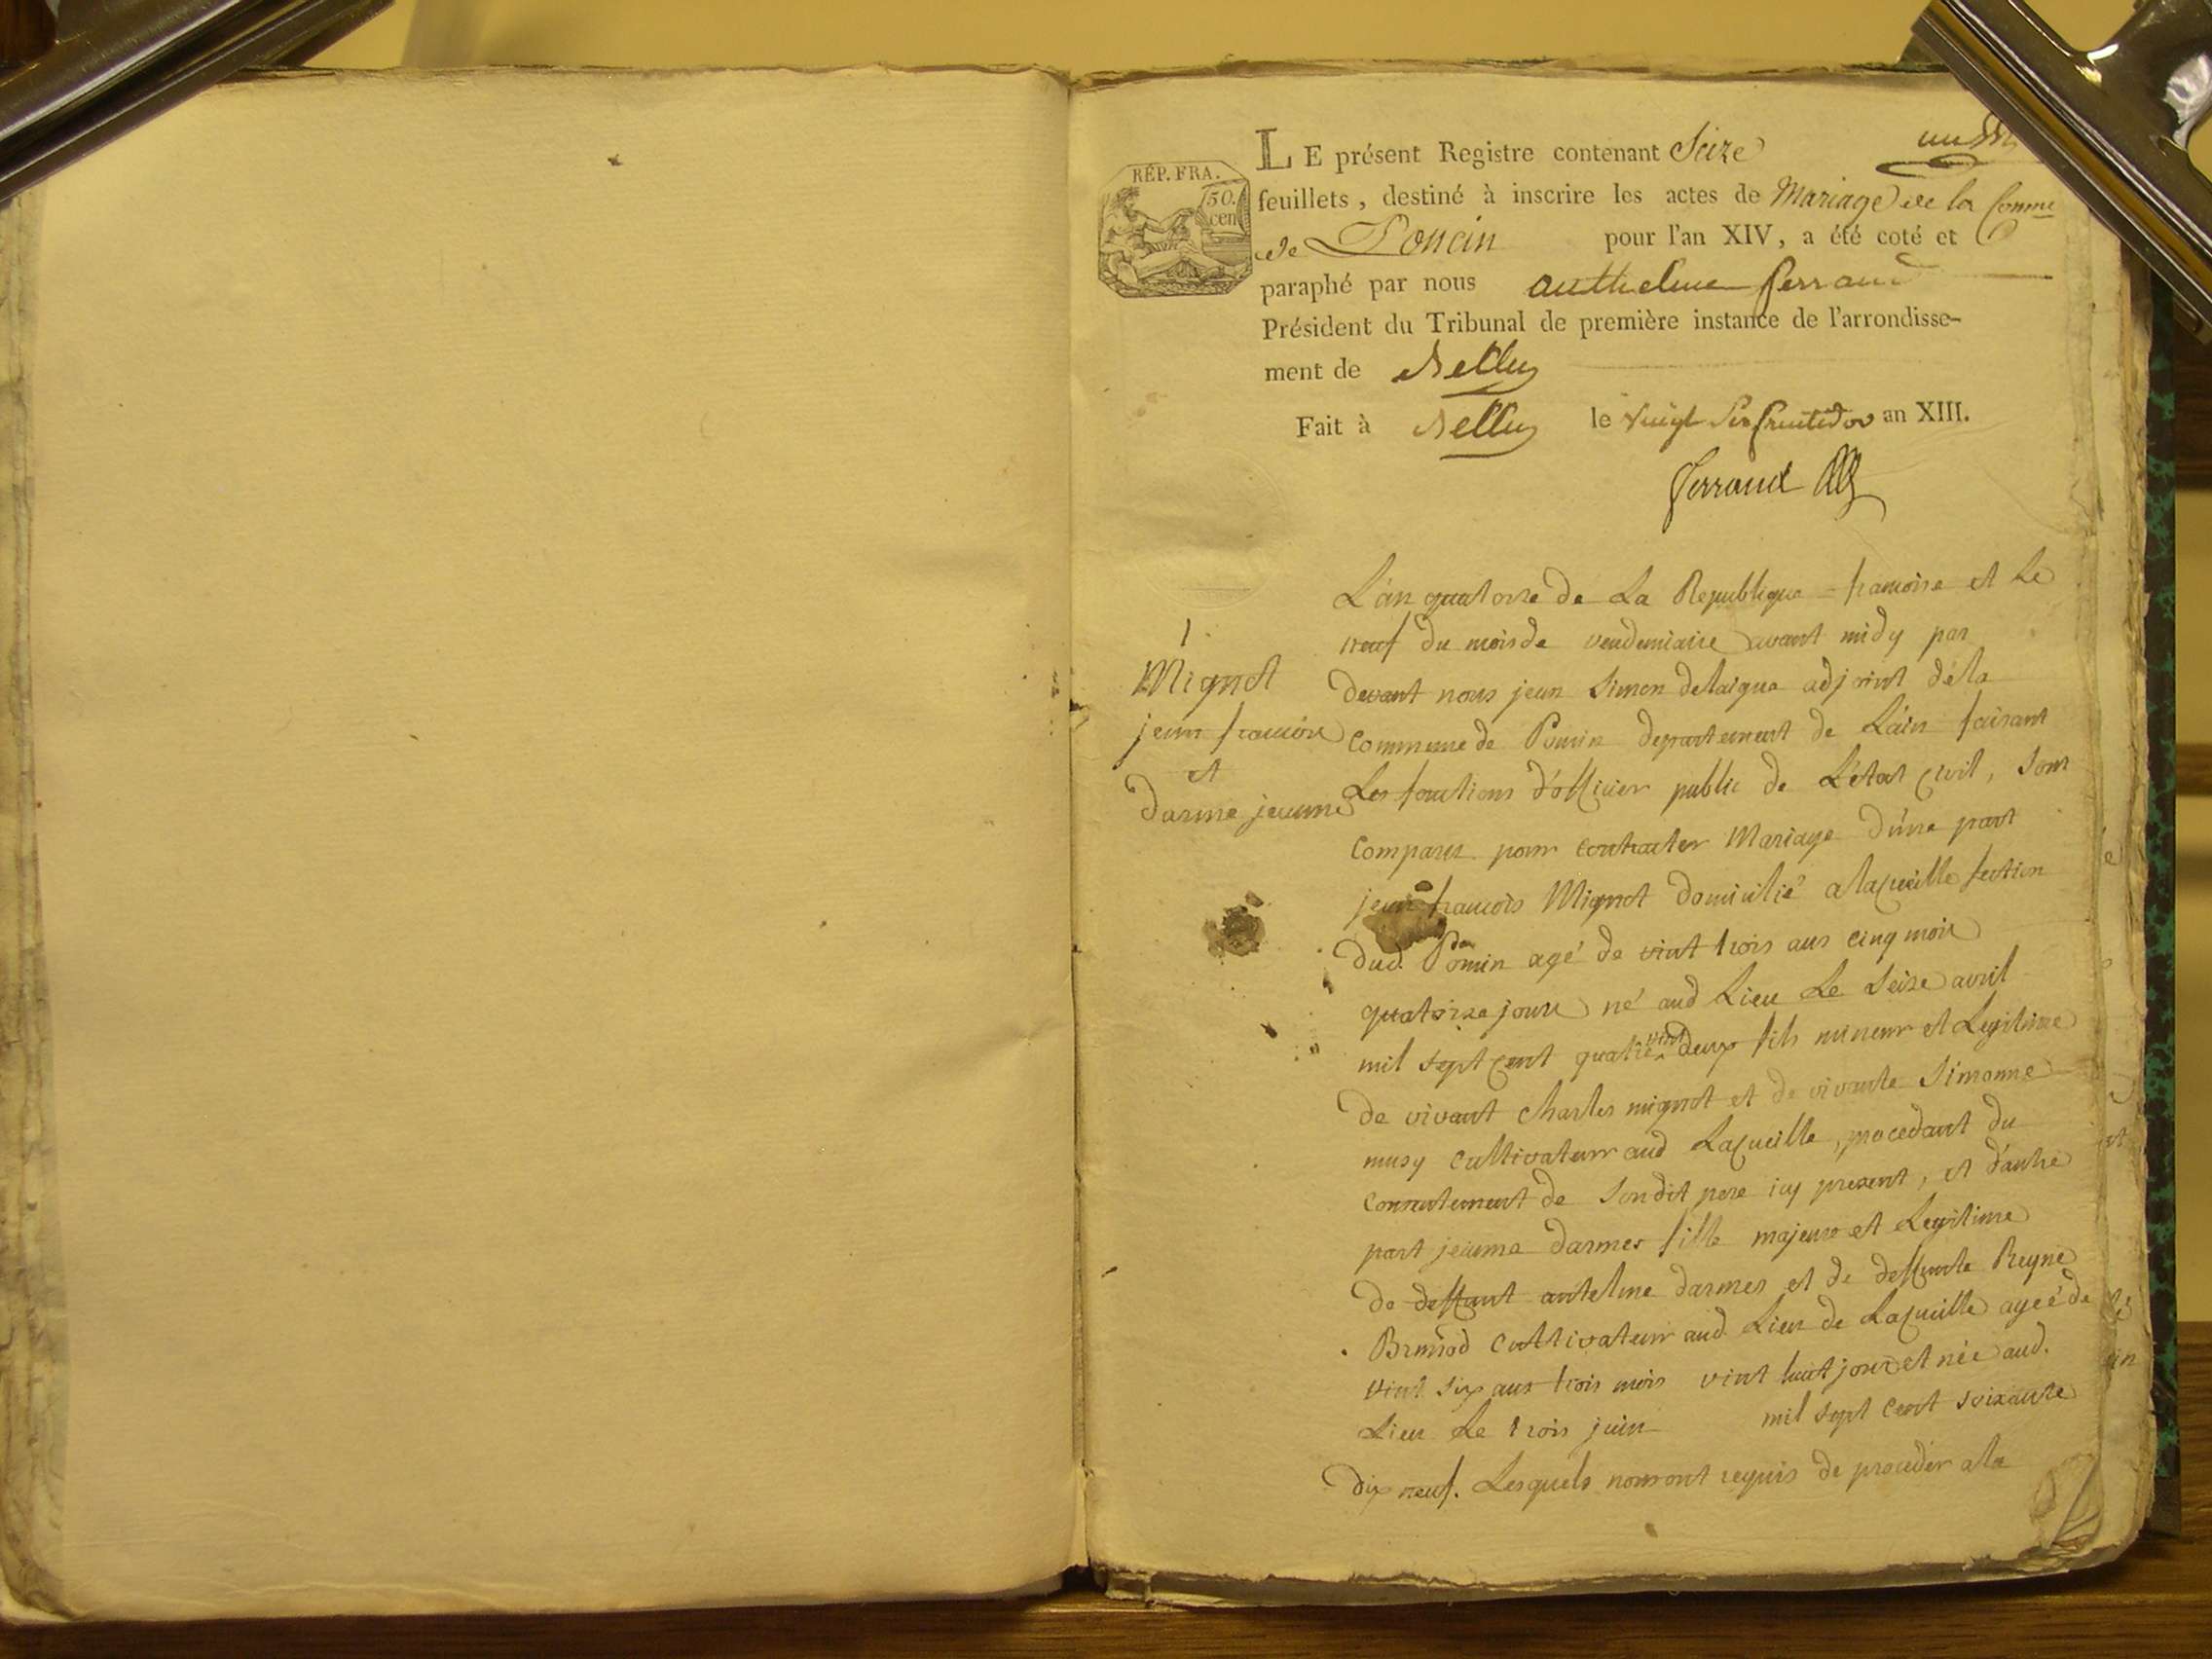 un
RÉP. FRA.
50. cen
LE présent Registre contenant Seize
feuillets, destiné à inscrire les actes de Mariage de la Comne
de Poncin pour l'an XIV, a été coté et
paraphé par nous anthelme ferrand
Président du Tribunal de première instance de l'arrondisse-
ment de Belley
Fait à Belley le vingt six fructidor an XIII.
ferrand
1
Mignot
jean francois
et
darme jeanne
L'an quatorze de La Republique francoise et Le
neuf du mois de vendemiaire avant midy par
devant nous jean Simon delaigue adjoint de la
Commune de Poncin departement de L'ain faisant
Les fonctions d'officier public de L'état Civil, sont
Comparus pour contracter Mariage d'une part
jean francois Mignot domicilié a laCueille section
dud. Poncin agé de vint trois ans cinq mois
quatorze jours né aud Lieu Le seize avril
mil sept Cent quatre vint deux fils mineur et Legitime
de vivant charles mignot et de vivante Simonne
musy Cultivateur aud LaCueille, procedant du
consentement de son dit pere icy present, et d'autre
part jeanne darmes fille majeure et Legitime
de deffunt antelme darmes et de deffunte Reyne
Cultivateur aud Lieu de LaCueille ageé de
vint six ans trois mois vint huit jours et née aud.
Lieu Le trois juin mil sept Cent soixante
dix neuf. Lesquels nous ont requis de proceder a la